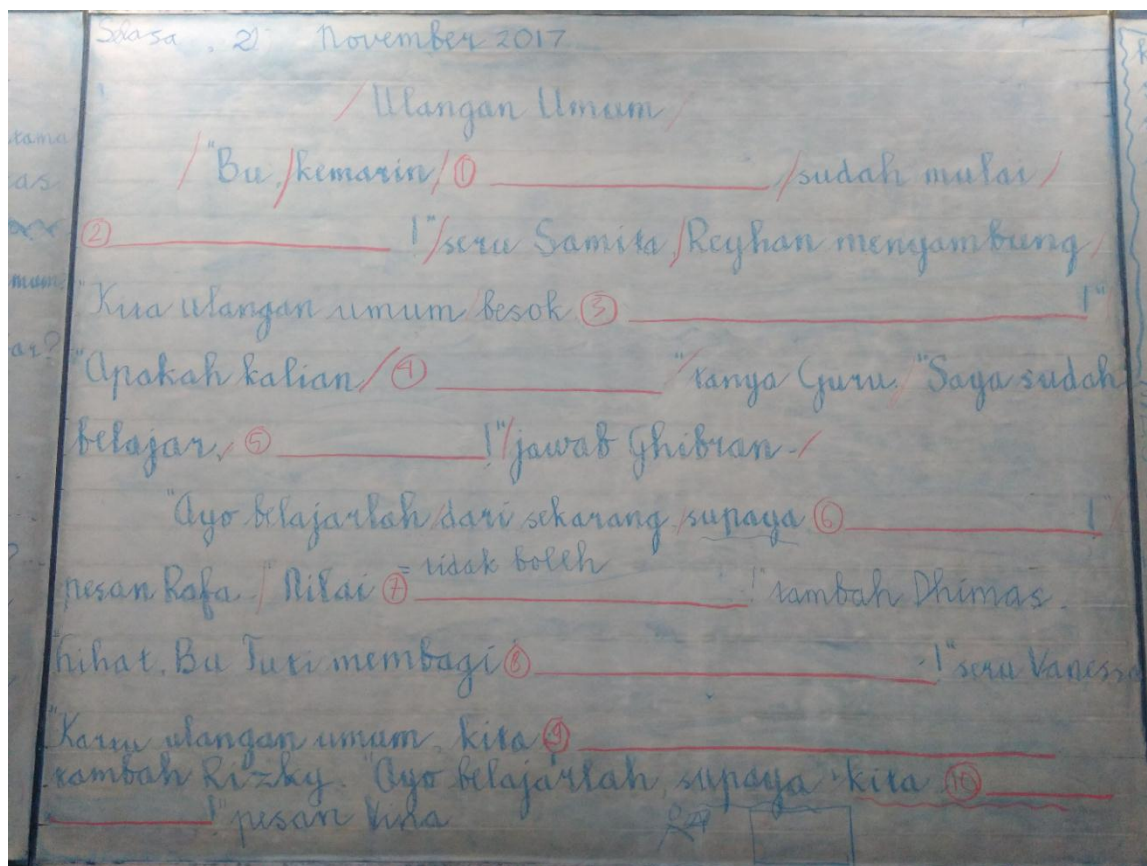 Selasa, 21 November 2017
/ Ulangan Umum /
/ "Bu, / kemarin / ① ____________ / sudah mulai /
② ____________ !" / seru Samita. / Reyhan mengambung /
"Kita ulangan umum / besok ③ ____________ !" /
"Apakah kalian / ④ ____________ " / tanya Guru. / "Saya sudah
belajar, / ⑤ ____________ !" / jawab Ghibran. /
"Ayo belajarlah / dari sekarang / supaya ⑥ ____________ !
= tidak boleh
pesan Rafa. / Nilai ⑦ ____________ !" tambah Dhimas.
"Lihat, Bu Tuti membagi ⑧ ____________ !" seru Vanessa
"Kartu ulangan umum, kita ⑨ ____________
tambah Rizky. "Ayo belajarlah, supaya kita ⑩ ______
____________ !" pesan
tama
as
mum
ar?